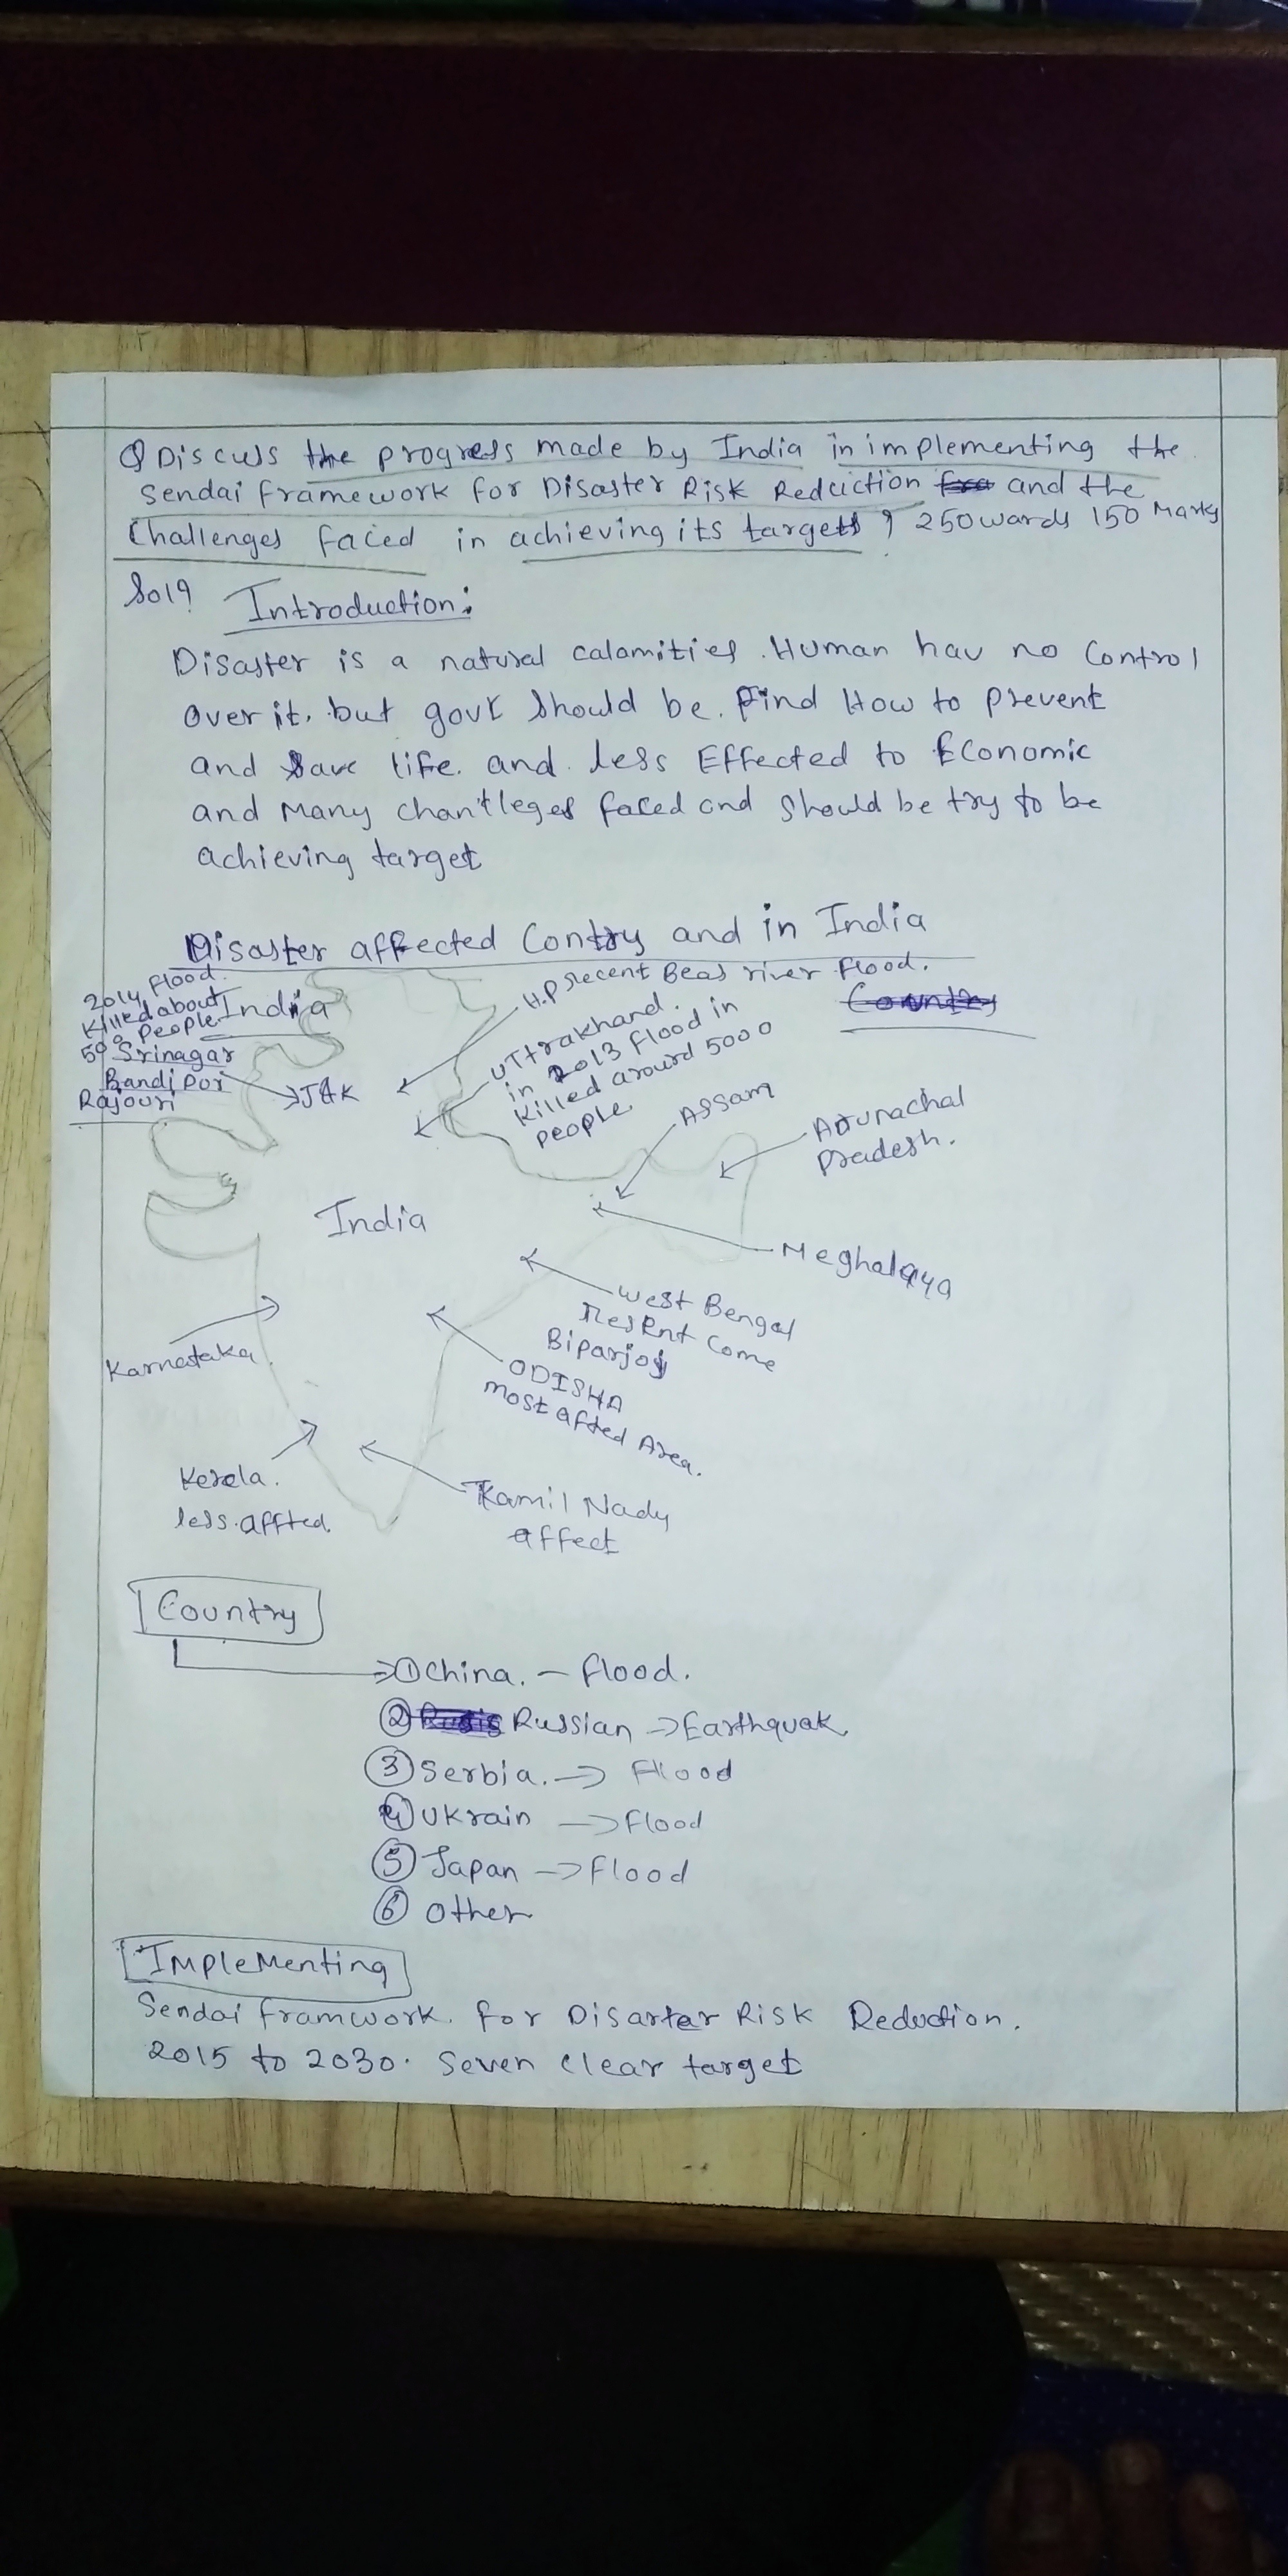 Q Discuss the progress made by India in implementing the
Sendai framework for Disaster Risk Reduction and the
Challenges faced in achieving its targets ? 250 wards 150 Marks
Sol9 Introduction:
Disaster is a natural calamities. Human hav no Control
Over it. but govt should be. Find How to prevent
and save life. and less Effected to Economic
and Many chantleges faced and should be try to be
achieving target
Disaster affected Contry and in India
2014 Flood.
Killed about
500 People
India
Srinagar
Bandipor
Rajouri
J&K
H.P recent Beas river flood.
Uttrakhand.
in 2013 flood in
Killed around 5000
people
Assam
Arunachal
Pradesh.
India
Meghalaya
West Bengal
Resent Come
Biparjoy
ODISHA
most afted Area.
Karnataka
Kerela.
less affted.
Tamil Nady
affect
Country
① China. – flood.
② Russian → Earthquak
③ Serbia. → Flood
④ Ukrain → flood
⑤ Japan → flood
⑥ Other
Implementing
Sendai framwork. for Disarter Risk Reduction.
2015 to 2030. Seven clear target